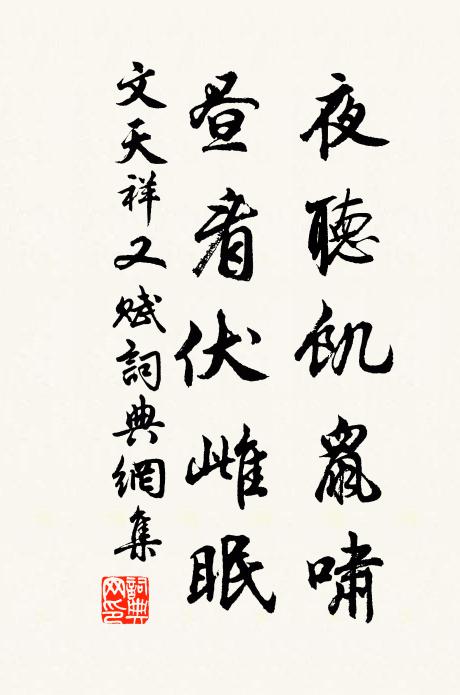 夜聽飢鼠嘯
昼看伏雌眠
文天祥又賦詞典網集
詞典網印